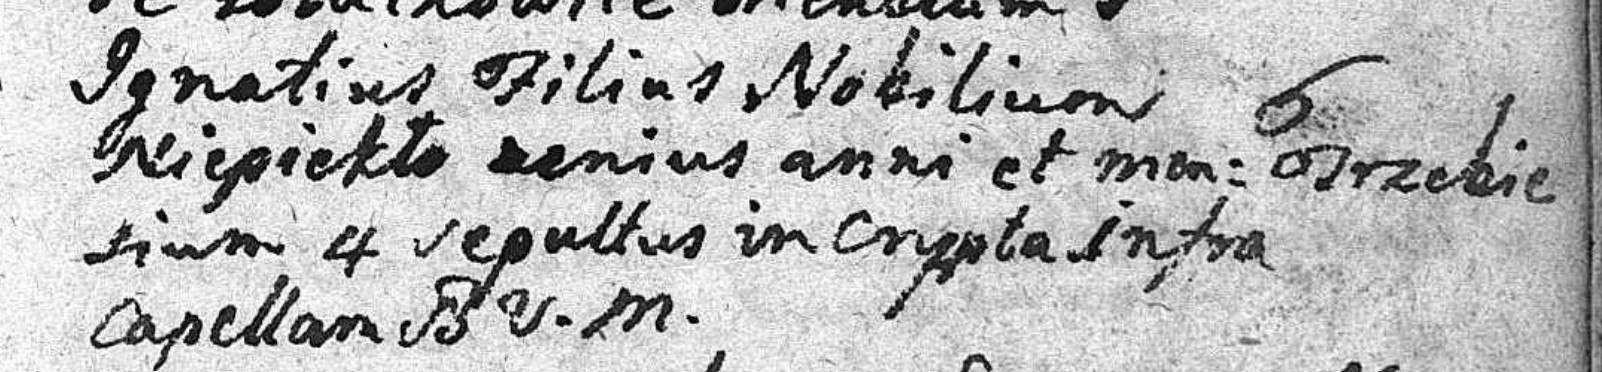 Ignatius Filius Nobilium 6
Niepiekło unius anni et men: Trzebie
sium 4 sepultus in Crypta infra
Capellam B V. M.